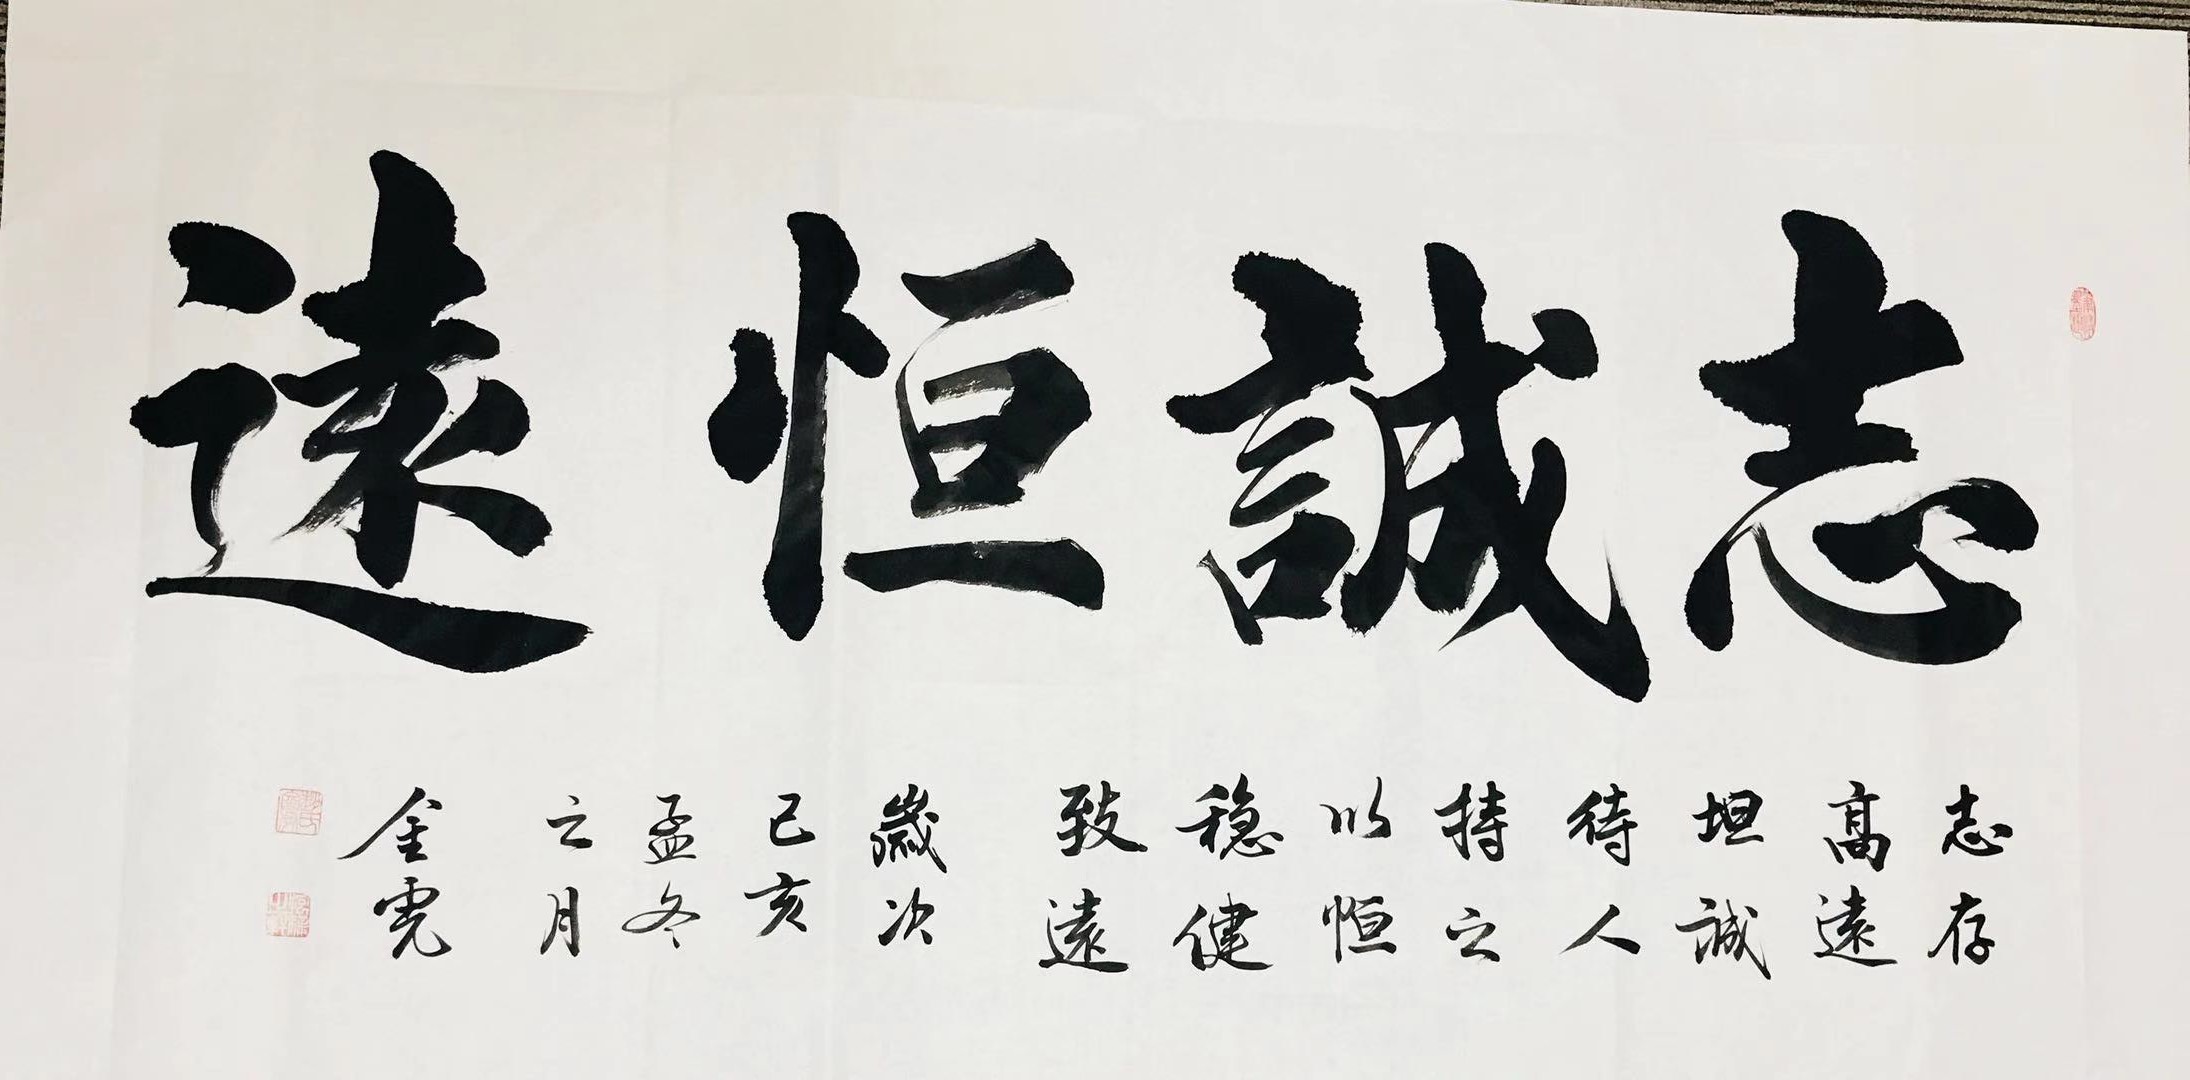 志誠恒遠
志存
高遠
坦誠
待人
持之
以恒
穏健
致遠
歲次
己亥
孟冬
之月
金霓